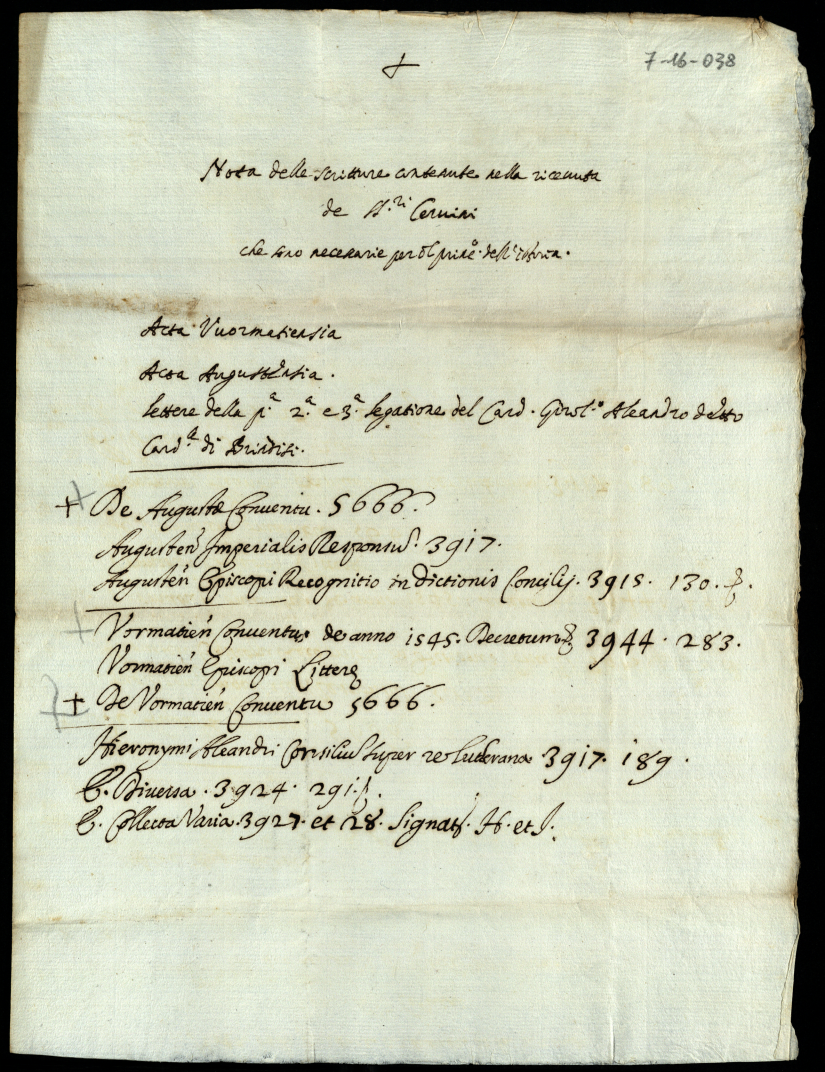 7-16-038
Nota delle scritture contenute nella riceuuta
de SS.ri Ceruini
che sono necessarie per il princ.o dell'Istoria.
Acta Vuormatiensia
Acta Augustensia.
Lettere della p.a 2.a e 3.a legatione del Card. Girol.o Aleandro detto
Card.le di Brindisi.
+ De Augustæ Conuentu. 5666.
Augusten Imperialis Responsu. 3917.
Augusten Episcopi Recognitio in dictionis Concilij. 3915. 130.
Vormatien Conuentus de anno 1545. Decretum 3944. 283.
Vormatien Episcopi Litteræ
+ De Vormatien Conuentu 5666.
Hieronymi Aleandri Consiliu super re Luterana 3917. 189.
E. Diuersa. 3924. 291.
E. Collecta Varia. 3927. et 28. signat. H. et I.